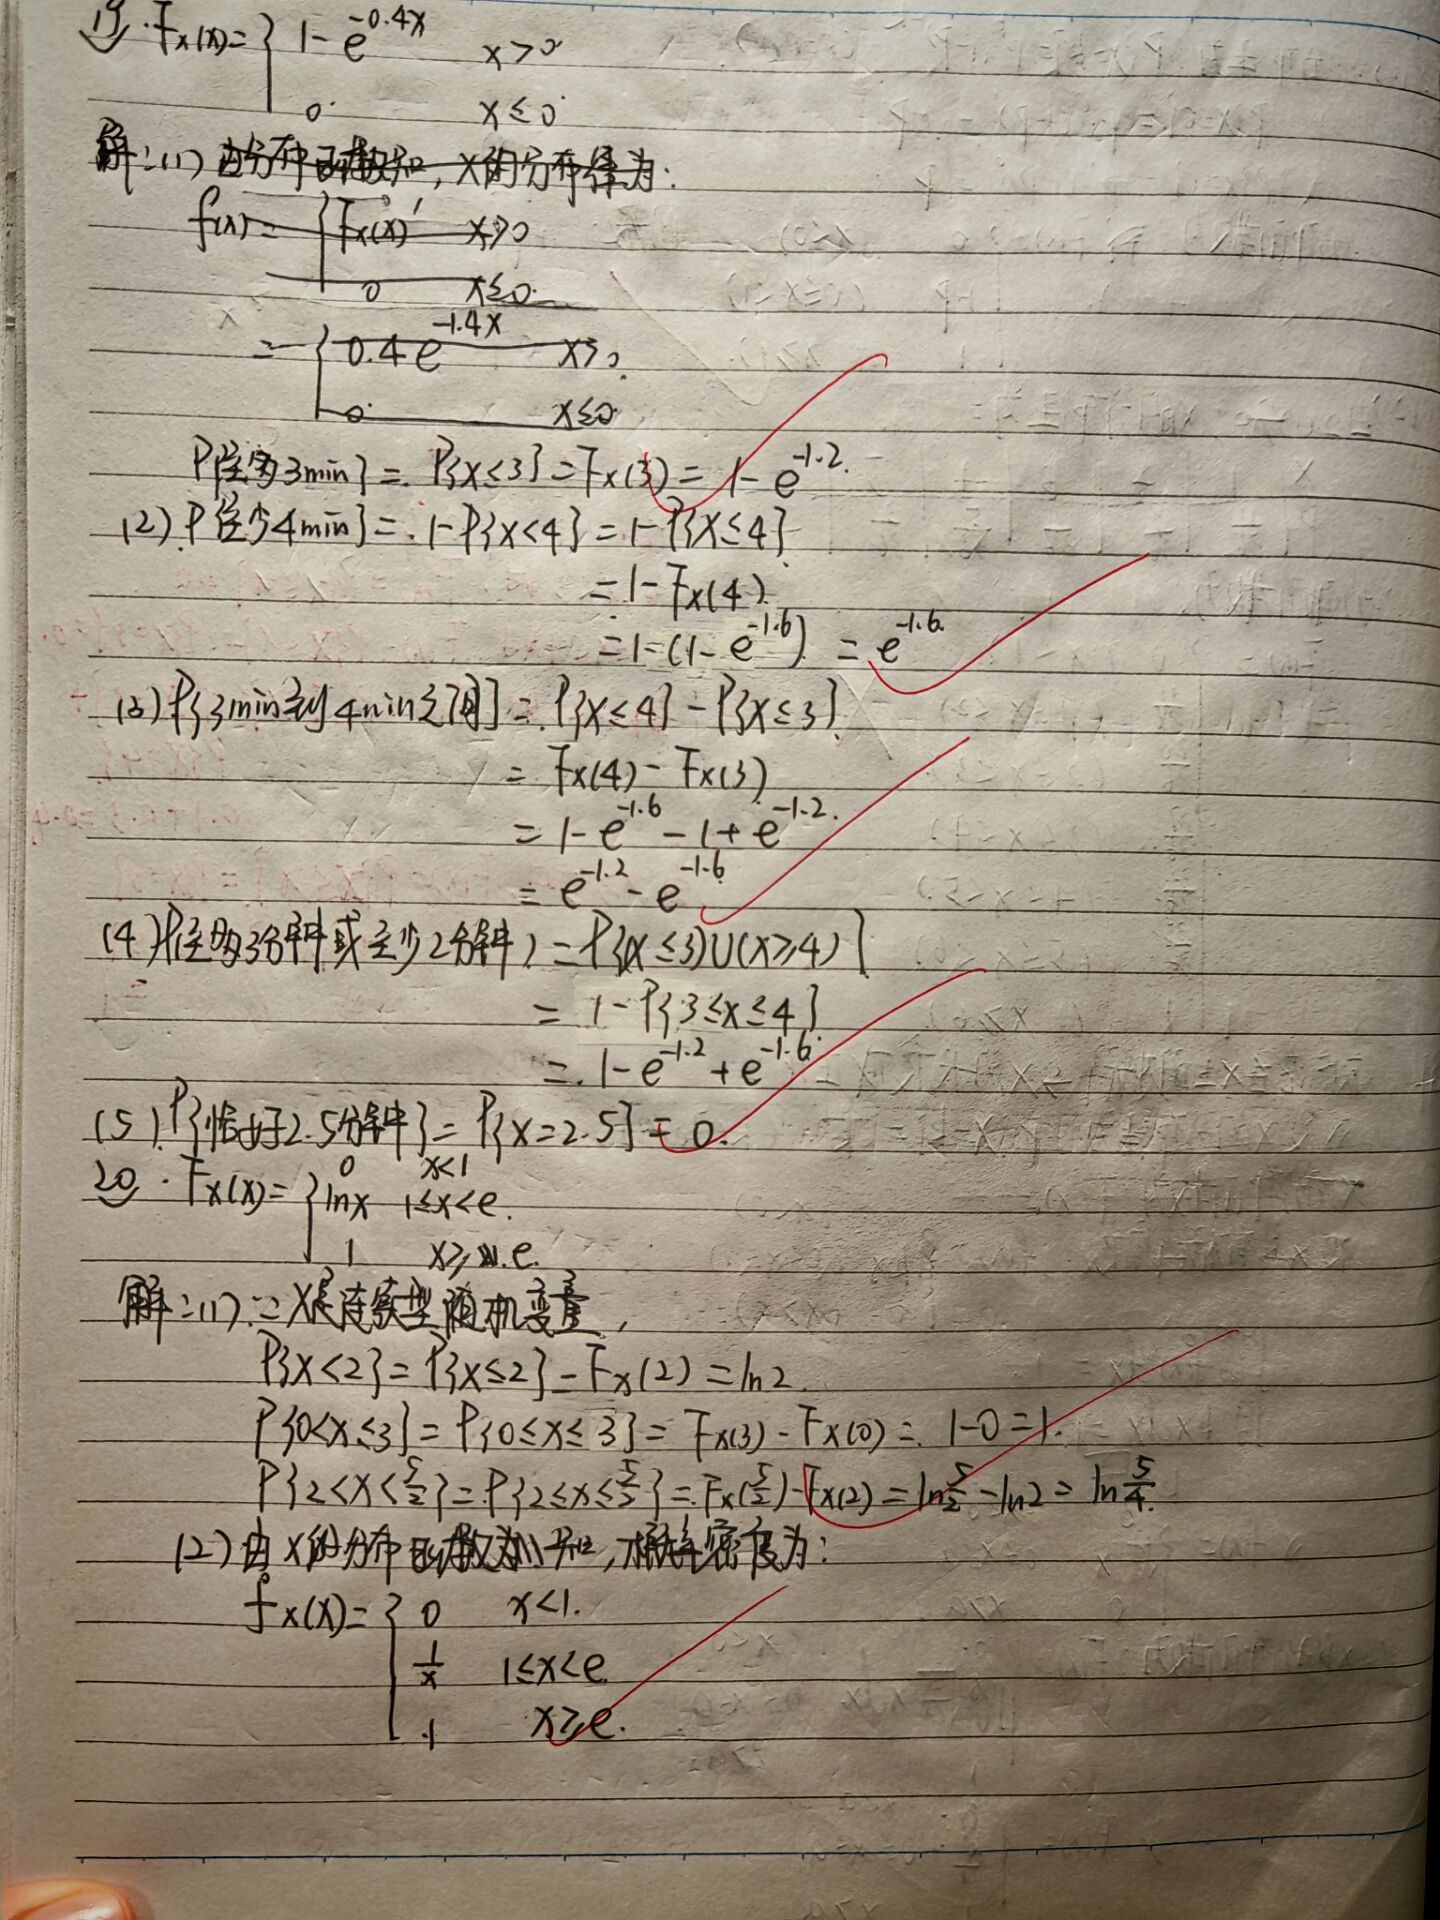 19. Fx(x)= { 1-e^{-0.4x} x>0
0 x≤0
解:(1) 由分布函数知, X的分布律为:
f(x)= { Fx(x)' x>0
0 x≤0
= { 0.4e^{-1.4x} x>0
0 x≤0
P{至多3min}= P{X≤3}=Fx(3)= 1-e^{-1.2}.
(2) P{至少4min}= 1-P{X<4}=1-P{X≤4}
=1-Fx(4)
=1-(1-e^{-1.6}) = e^{-1.6}
(3) P{3min到4min之间}= P{X≤4}-P{X≤3}
= Fx(4)-Fx(3)
= 1-e^{-1.6}-1+e^{-1.2}.
= e^{-1.2}-e^{-1.6}
(4) P{至多3分钟或至少2分钟}=P{(X≤3)∪(X≥4)}
= 1-P{3≤X≤4}
= 1-e^{-1.2}+e^{-1.6}.
(5) P{恰好2.5分钟}=P{X=2.5}=0.
20. Fx(x)= { 0 x<1
lnx 1≤x<e.
1 x≥e.
解:(1) ∵X是连续型随机变量,
P{X<2}=P{X≤2}=Fx(2)=ln2.
P{0<X≤3}=P{0≤X≤3}=Fx(3)-Fx(0)= 1-0=1.
P{2<X<5/2}=P{2≤X≤5/2}=Fx(5/2)-Fx(2)=ln5/2-ln2=ln5/4.
(2) 由X的分布函数知, 概率密度为:
fx(x)= { 0 x<1.
1/x 1≤x<e.
1 x≥e.